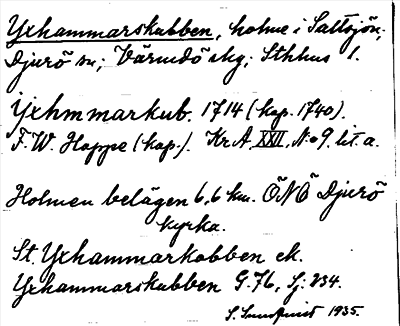 Yxhammarskubben, holme i Saltsjön,
Djurö sn; Värmdö skg; Sthlms l.
Yxhmmarkub. 1714 (kop. 1740).
F. W. Hoppe (kop.). Kr. A. XXII, No 9. lit. a.
Holmen belägen 6,6 km. ÖNÖ Djurö
kyrka.
St. Yxhammarkobben ek.
Yxhammarskubben G. 76, Sj: 234.
S. Sundquist 1935.